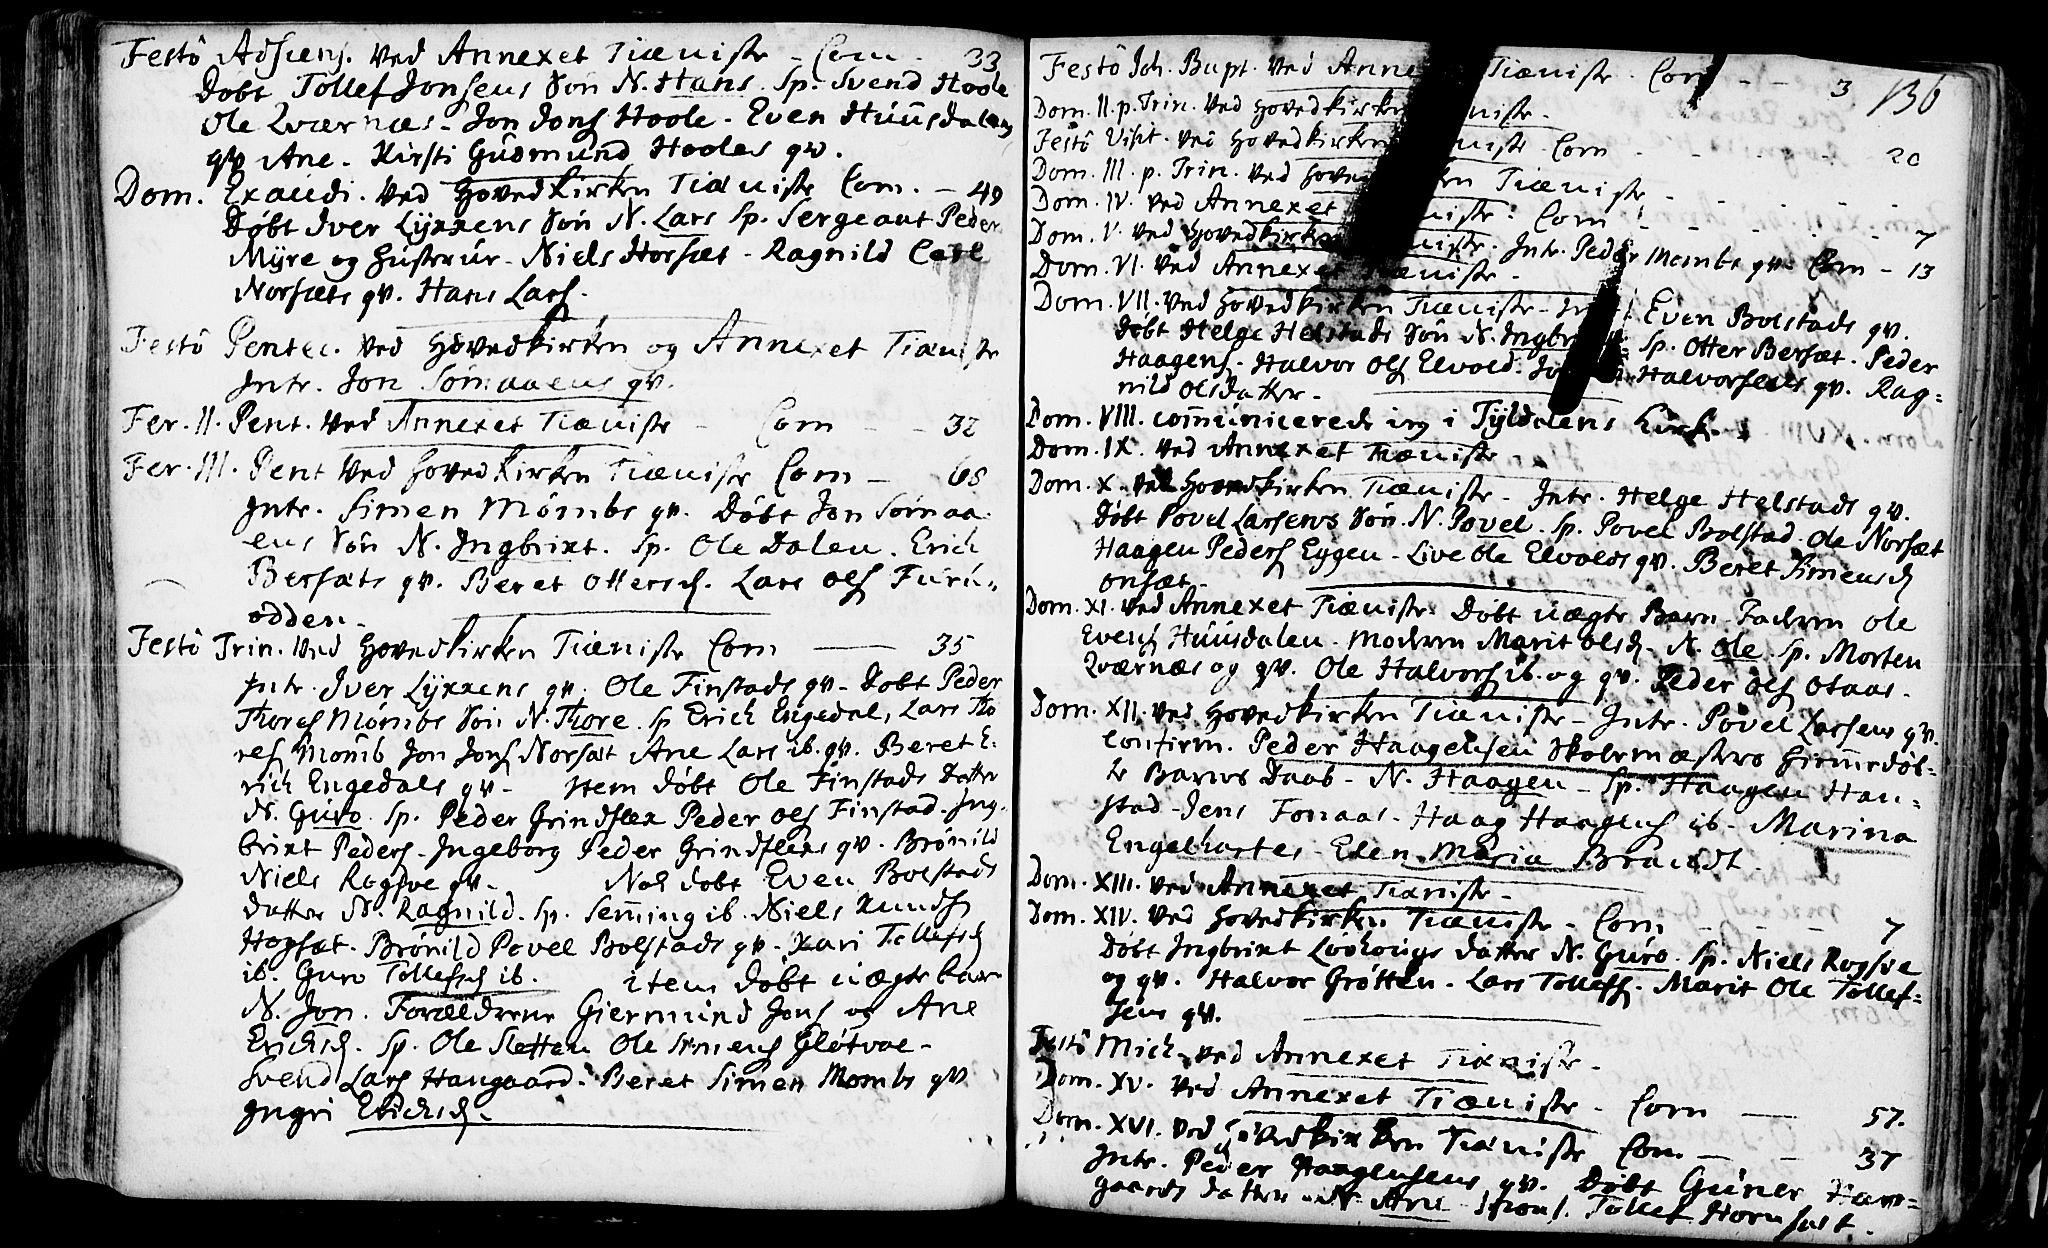 Festo Adscens. ved Annexet Tieniste - Com - 33
Døbt Tollef Jonsens Søn N. Hans. Sp. Svend Hoole
Ole Qværnæs - Jon Jons Hoole - Even Huusdalens
qv Ane. Kirsti Gudmund Hooles qv.
Dom. Exaudi. ved Hovedkirken Tieniste Com. - 49
Døbt Iver Lyxxens Søn N. Lars Sp. Sergeant Peder
Myre og Hustrue - Niels Horsæt - Ragnild Carl
Norsæts qv. Hans Lars.
Festo Pentec. ved Hovedkirken og Annexet Tieniste
Intr. Jon Sømaaens qv.
Fer. II. Pent. ved Annexet Tieniste - Com - - 32
Fer. III. Pent ved Hovedkirken Tieniste Com - 68
Intr. Simen Mømbs qv. Døbt Jon Sømaa-
ens Søn N. Ingbrixt. Sp. Ole Dalen. Erich
Bersæts qv. Beret Ottersd. Lars Ols Furu-
odden.
Festo Trin. ved Hovedkirken Tieniste Com - 35
Intr. Iver Lyxxens qv. Ole Finstads qv - Døbt Peder
Thores Mømbs Søn N. Thore. Sp Erich Engedal, Lars Tho
res Momb Jon Jons Norsæt Ane Lars ib. qv. Beret E-
rich Engedals qv - Item døbt Ole Finstads Datter
N. Guro. Sp. Peder Grindflex Peder Ols Finstad. Ing-
brixt Peders - Ingeborg Peder Grindflexs qv. Brønild
Niels Rogsve qv - Nok døbt Even Bolstads
datter N. Ragnild. Sp. Semming ib. Niels Knuds
Hogsæt. Brønild Povel Bolstads qv - Kari Tollefsd
ib. Guro Tollefsd ib. item døbt uægte barn
N. Jon. Forældrene Giermund Jons og Ane
Erichsd. Sp. Ole Sletten Ole Simens Gløtvae -
Svend Lars Haugaard. Beret Simen Mombs qv
Ingri Erichsd.
136
Festo Joh. Bapt. ved Annexet Tieniste. Com - - 3
Dom. II. p. Trin. ved Hovedkirken Tieniste.
Festo Visit. ved Hovedkirken Tieniste. Com - - - 20
Dom. III. p. Trin. ved Hovedkirken Tieniste
Dom. IV. ved Annexet Tieniste. Com - - - 7
Dom. V. ved Hovedkirken Tieniste. Intr. Peder Mombs qv. Com - 13
Dom. VI. ved Annexet Tieniste -
Dom. VII. ved Hovedkirken Tieniste - Even Bolstads qv.
Døbt Helge Helstads Søn N. Sp. Otter Bersæt. Peder
Haagens. Halvor Ols Elvold. Halvorsens qv. Rag-
nild Olsdatter.
Dom. VIII. communicerede ieg i Tyldalens Kirke.
Dom. IX. ved Annexet Tieniste -
Dom. X. ved Hovedkirken Tieniste - Intr. Helge Helstads qv.
Døbt Povel Larsens Søn. N. Povel. Sp. Povel Bolstad. Ole Norsæt
Haagen Peders Eggen - Live Ole Elvolds qv. Beret Simensd
onsæt -
Dom. XI. ved Annexet Tieniste. Døbt uægte Barn. Faderen Ole
Evens Huusdalen. Moderen Marit Olsd - N. Ole. Sp. Morten
Qværnæs og qv. Ole Halvors ib. og qv. Peder Ols Otaas.
Dom. XII. ved Hovedkirken Tieniste - Intr. Povel Larsens qv.
Confirm. Peder Haagensen Skolemæsters Hiemmedøb-
te Barns Daab - N. Haagen - Sp. Haagen Han-
stad - Jens Fonaas - Haag Haagens ib - Marina
Engelhartes - Elen Maria Brandt.
Dom. XIII. ved Annexet Tieniste -
Dom. XIV. ved Hovedkirken Tieniste - Com - - 7
Døbt Ingbrixt Lodvigs datter N. Guro. Sp. Niels Rogsve
og qv. Halvor Grøtten. Lars Tollefs. Marit Ole Tollef-
sens qv.
Festo Mich. ved Annexet Tieniste -
Dom. XV. ved Annexet Tieniste - Com - 57.
Dom. XVI. ved Hovedkirken Tieniste Com - - 37
Intr. Peder Haagensens qv. Døbt Guner Haw-
gaards datter N. Ane Tollef Hornsæt.